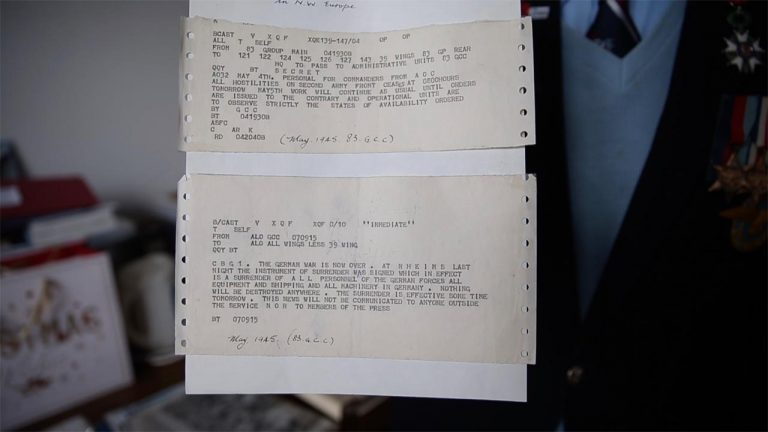 in N.W Europe
BCAST V X Q F XQE139-147/04 OP OP
ALL T SELF
FROM 83 GROUP MAIN 041930B
TO 121 122 124 125 126 127 143 39 WINGS 83 GP REAR
HQ TO PASS TO ADMINISTRATIVE UNITS 83 GCC
QQY BT S E C R E T
AO32 MAY 4TH. PERSONAL FOR COMMANDERS FROM A O C
ALL HOSTILITIES ON SECOND ARMY FRONT CEASES AT 0800HOURS
TOMORROW MAY5TH WORK WILL CONTINUE AS USUAL UNTIL ORDERS
ARE ISSUED TO THE CONTRARY AND OPERATIONAL UNITS ARE
TO OBSERVE STRICTLY THE STATES OF AVAILABILITY ORDERED
BY G C C
BT 041930B
ASFC
C AR K
RD 042040B (May 1945 83 G.C.C)
B/CAST V X Q F XQF 0/10 "IMMEDIATE"
T SELF
FROM ALO GCC 070915
TO ALO ALL WINGS LESS 39 WING
QQY BT
C B G 1 . THE GERMAN WAR IS NOW OVER . AT R H E I M S LAST
NIGHT THE INSTRUMENT OF SURRENDER WAS SIGNED WHICH IN EFFECT
IS A SURRENDER OF A L L PERSONNEL OF THE GERMAN FORCES ALL
EQUIPMENT AND SHIPPING AND ALL MACHINERY IN GERMANY . NOTHING
WILL BE DESTROYED ANYWHERE . THE SURRENDER IS EFFECTIVE SOME TIME
TOMORROW . THIS NEWS WILL NOT BE COMMUNICATED TO ANYONE OUTSIDE
THE SERVICE N O R TO MEMBERS OF THE PRESS
BT 070915
May 1945 (83 G.C.C)